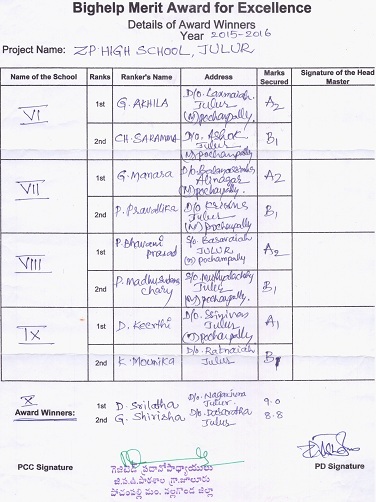 Bighelp Merit Award for Excellence
Details of Award Winners
Year 2015-2016
Project Name: ZP HIGH SCHOOL, JULUR
Name of the School Ranks Ranker's Name Address Marks Secured Signature of the Head Master
VI
1st G. AKHILA D/o. Laxmaiah A2
Julur
(M) pochampally
2nd CH. SARAMMA D/o. Ashok B1
Julur
(M) pochampally
VII
1st G. Manasa D/o. A2
Alinagar
(M) pochampally
2nd P. Pravallika D/o. Krishna B1
Julur
(M) pochampally
VIII
1st P. Bhavani S/o. Basavaiah A2
prasad JULUR
(M) pochampally
2nd P. Madhusudana S/o. B1
chary Julur
(M) pochampally
IX
1st D. Keerthi D/o. Srinivas A1
Julur
(M) pochampally
2nd K. Mounika D/o. Ratnaiah B1
Julur
X
Award Winners:
1st D. Srilatha D/o. 9.0
Julur
2nd G. Shirisha D/o. Dasaratha 8.8
Julur
PCC Signature
గెజిటెడ్ ప్రధానోపాధ్యాయులు
జి.ప.ఉ.పాఠశాల గ్రా.జూలూరు
పోచంపల్లి మం. నల్లగొండ జిల్లా
PD Signature